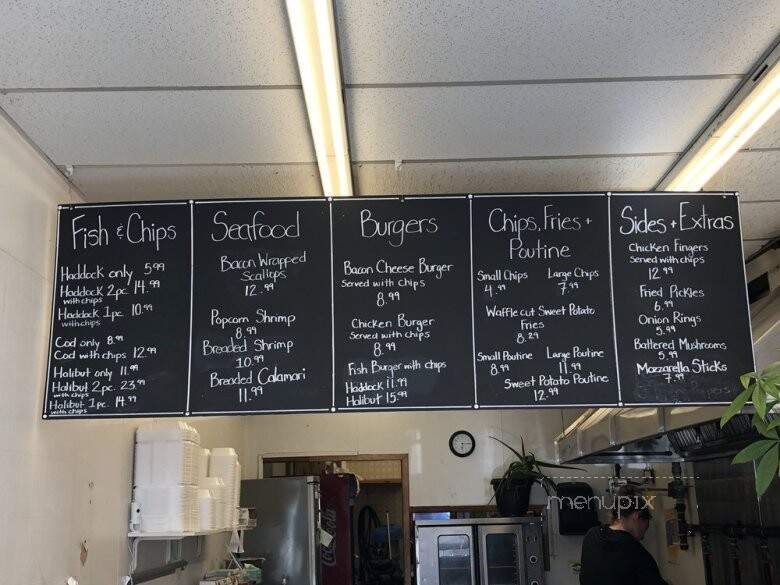 Fish & Chips
Haddock only 5.99
Haddock 2pc. 14.99
with chips
Haddock 1pc. 10.99
with chips
Cod only 8.99
Cod with chips 12.99
Halibut only 11.99
Halibut 2pc. 23.99
with chips
Halibut 1pc. 14.99
with chips
Seafood
Bacon Wrapped
Scallops
12.99
Popcorn Shrimp
8.99
Breaded Shrimp
10.99
Breaded Calamari
11.99
Burgers
Bacon Cheese Burger
Served with chips
8.99
Chicken Burger
Served with chips
8.99
Fish Burger with chips
Haddock 11.99
Halibut 15.99
Chips, Fries +
Poutine
Small Chips Large Chips
4.99 7.99
Waffle cut Sweet Potato
Fries
8.29
Small Poutine Large Poutine
8.99 11.99
Sweet Potato Poutine
12.99
Sides + Extras
Chicken Fingers
Served with chips
12.99
Fried Pickles
6.99
Onion Rings
5.99
Battered Mushrooms
5.99
Mozzarella Sticks
7.99
menupix